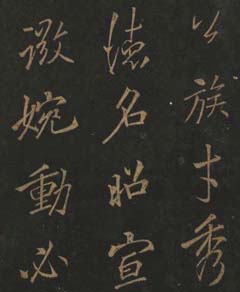 公族才秀
德名昭宣
徽婉動必